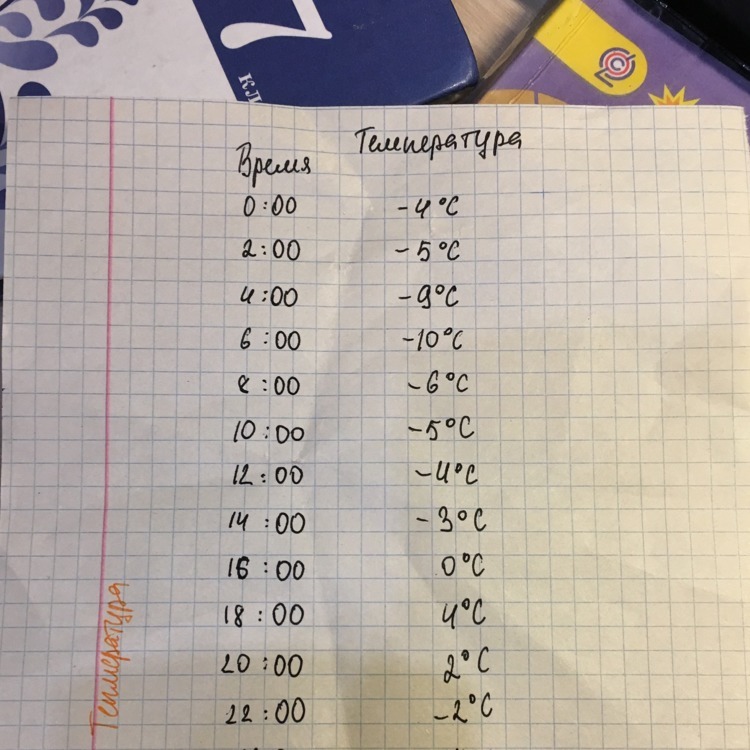 7
КЛ
Время Температура
0:00 -4°C
2:00 -5°C
4:00 -9°C
6:00 -10°C
8:00 -6°C
10:00 -5°C
12:00 -4°C
14:00 -3°C
16:00 0°C
18:00 4°C
20:00 2°C
22:00 -2°C
Температура